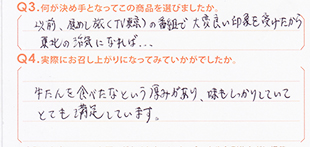 Q3.何が決め手となってこの商品を選びましたか。
以前、庭めし旅(TV東京)の番組で大変良い印象を受けたから
東北の活気になれば...
Q4.実際にお召し上がりになってみていかがでしたか。
牛たんを食べたなという厚みがあり、味もしっかりしていて
とても満足しています。